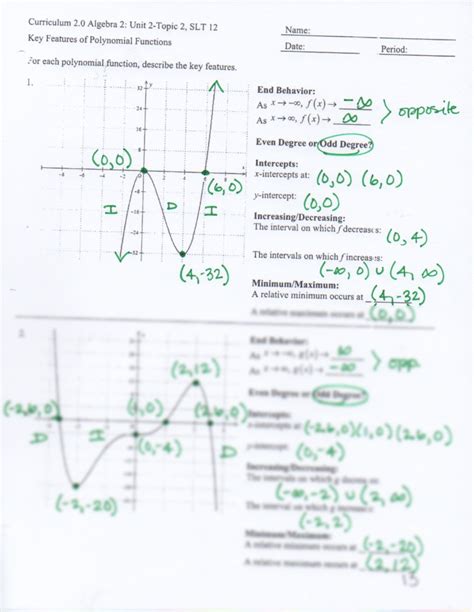 Curriculum 2.0 Algebra 2: Unit 2-Topic 2, SLT 12
Name:
Key Features of Polynomial Functions
Date: Period:
For each polynomial function, describe the key features.
1.
End Behavior:
As x → -∞, f(x) → -∞
As x → ∞, f(x) → ∞
> opposite
Even Degree or Odd Degree?
Intercepts:
x-intercepts at: (0,0) (6,0)
y-intercept: (0,0)
Increasing/Decreasing:
The interval on which f decreases: (0,4)
The intervals on which f increases:
(-∞, 0) ∪ (4, ∞)
Minimum/Maximum:
A relative minimum occurs at (4,-32)
A relative maximum occurs at (0,0)
(0,0)
(6,0)
I D I
(4,-32)
2.
End Behavior:
As x → -∞, g(x) → ∞
As x → ∞, g(x) → -∞
> opp.
Even Degree or Odd Degree?
Intercepts:
x-intercepts at: (-2.6,0) (1,0) (2.6,0)
y-intercept: (0,-4)
Increasing/Decreasing:
The intervals on which g decreases:
(-∞,-2) ∪ (2,∞)
The interval on which g increases:
(-2,2)
Minimum/Maximum:
A relative minimum occurs at (-2,-20)
A relative maximum occurs at (2,12)
(2,12)
(-2.6,0) (1,0) (2.6,0)
D I D
(0,-4)
(-2,-20)
13